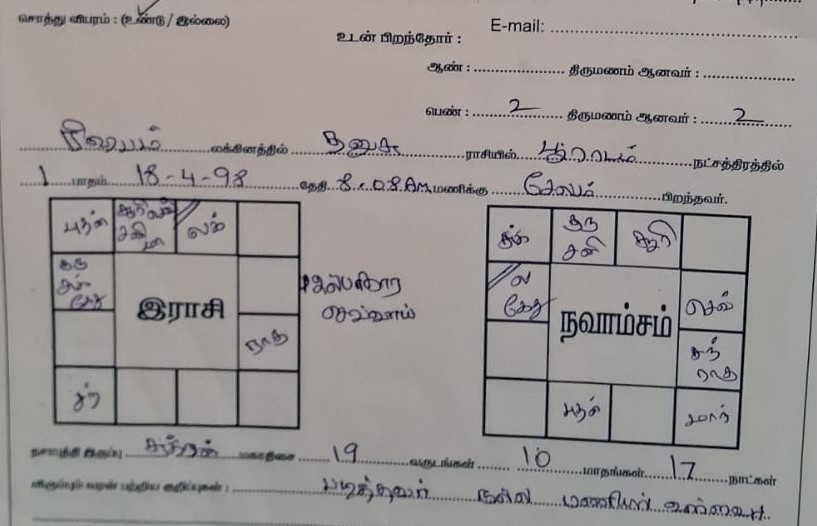 சொத்து விபரம் : (உண்டு / இல்லை)
உடன் பிறந்தோர் :
E-mail:
ஆண் : திருமணம் ஆனவர் :
பெண் : 2 திருமணம் ஆனவர் : 2
ரிஷபம் லக்கினத்தில் தனுசு ராசியில் பூராடம் நட்சத்திரத்தில்
1 பாதம் 18-4-98 தேதி 8.08AM மணிக்கு சேலம் பிறந்தவர்.
புதன்
சூரி
சனி
லக்
குரு
சுக்
கேது
இராசி
ராகு
சந்
செவ்வாய்
சுக்
குரு
சனி
சூரி
ல
கேது
நவாம்சம்
செவ்
சந்
ராகு
புதன்
மாந்
தசாபுத்தி இருப்பு சுக்ரன் மகாதிசை 19 வருடங்கள் 10 மாதங்கள் 17 நாட்கள்
விரும்பும் வரன் பற்றிய குறிப்புகள் : படித்தவர் நல்ல